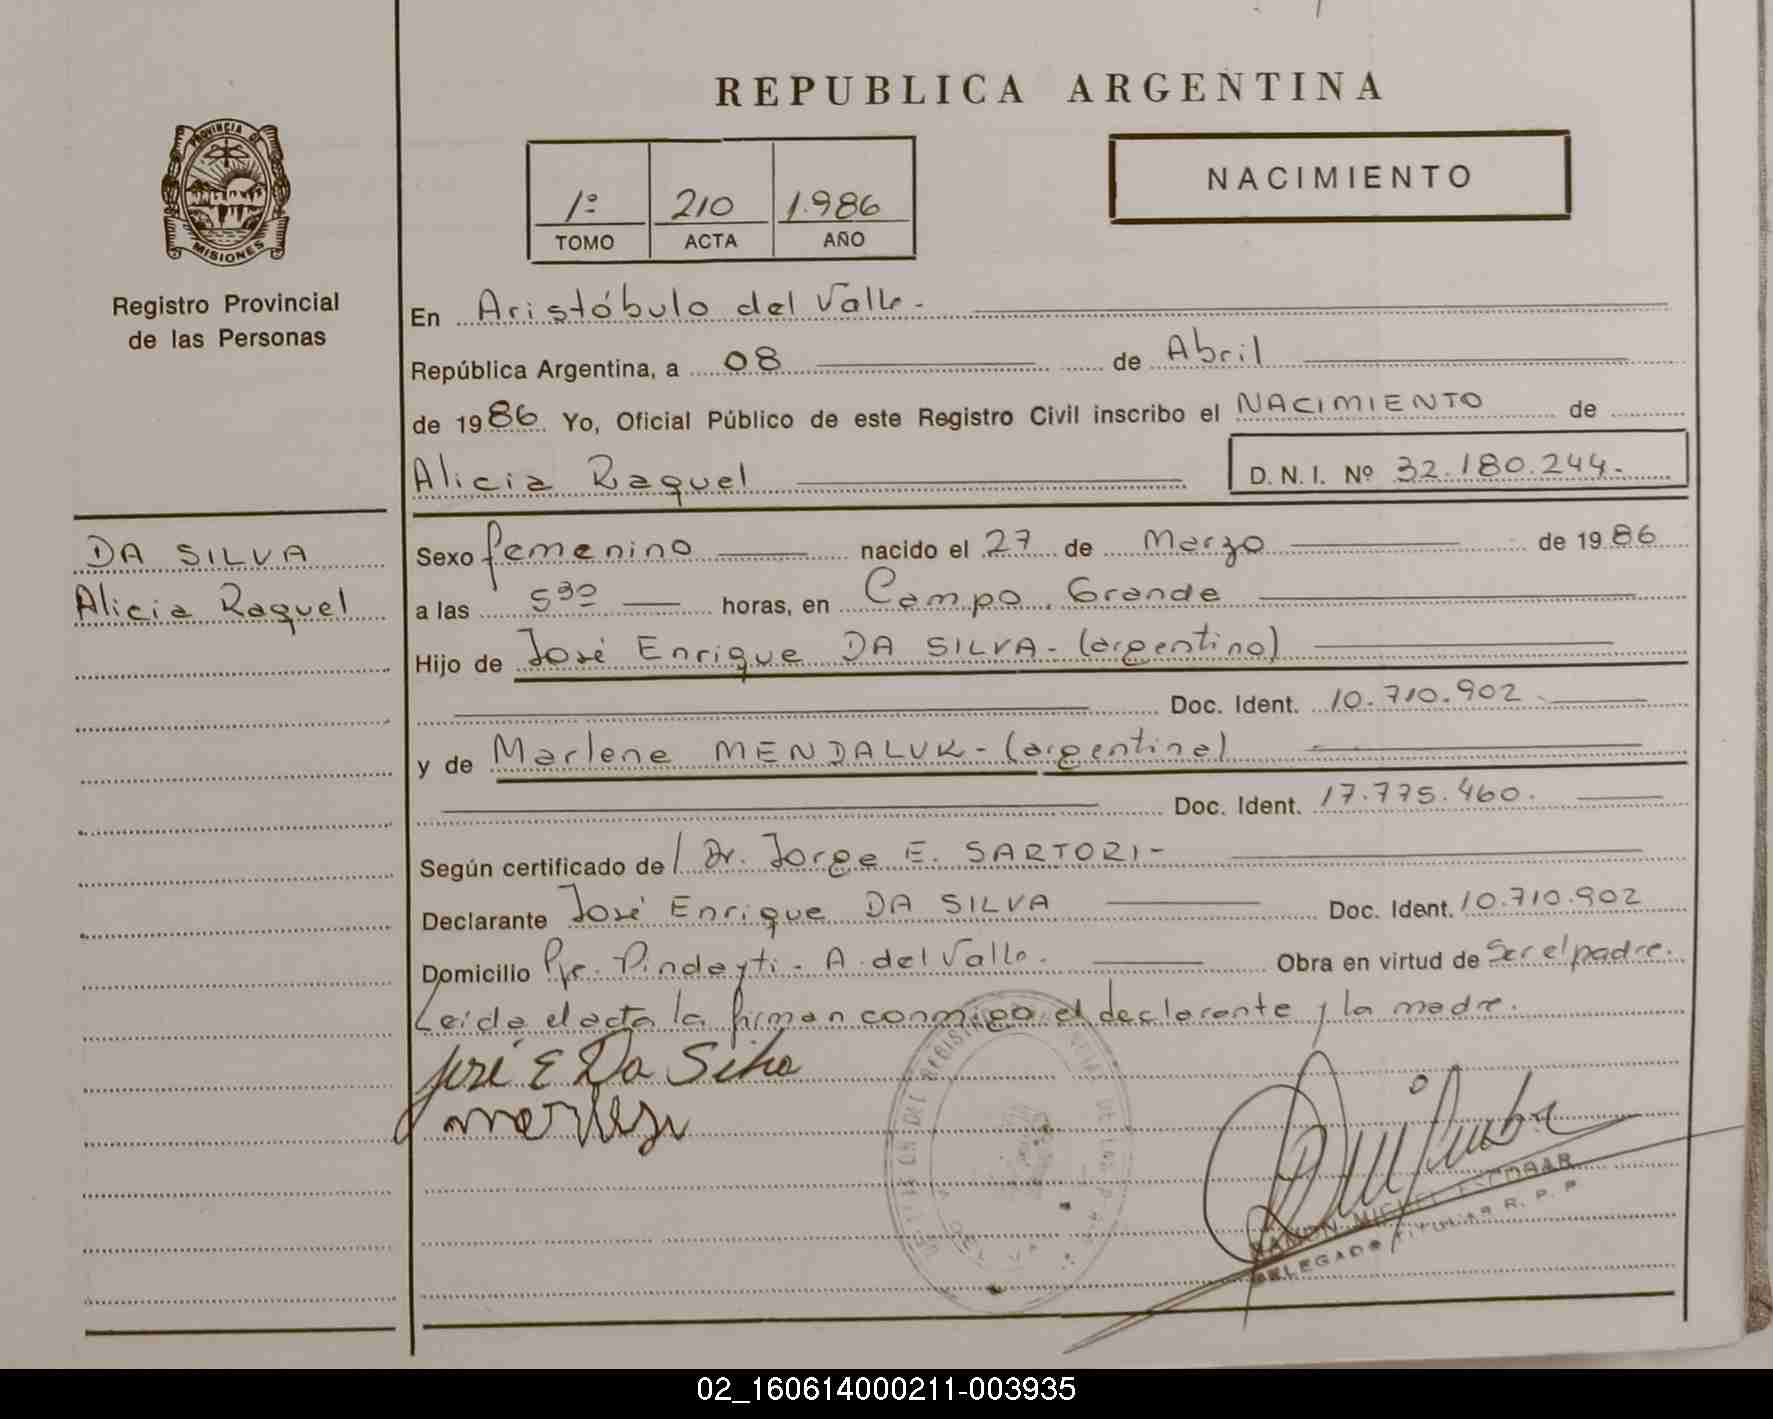 REPUBLICA ARGENTINA
PROVINCIA DE
MISIONES
Registro Provincial
de las Personas
1º 210 1.986
TOMO ACTA AÑO
NACIMIENTO
En Aristóbulo del Valle.-
República Argentina, a 08 de Abril
de 1986 Yo, Oficial Público de este Registro Civil inscribo el NACIMIENTO de
Alicia Raquel D. N. I. Nº 32.180.244.-
DA SILVA
Alicia Raquel
Sexo femenino nacido el 27 de Marzo de 1986
a las 5³⁰ horas, en Campo Grande
Hijo de José Enrique DA SILVA-(argentino)
Doc. Ident. 10.710.902.
y de Marlene MENDALUK-(argentina)
Doc. Ident. 17.775.460.
Según certificado de/ Dr. Jorge E. SARTORI-
Declarante José Enrique DA SILVA Doc. Ident. 10.710.902
Domicilio Pje. Pindayti- A. del Valle. Obra en virtud de Ser el padre.
Leída el acta la firman conmigo el declarante y la madre.
José E Da Silva
RAMON MIGUEL ESCOBAR
DELEGADO TITULAR R. P. P.
02_160614000211-003935